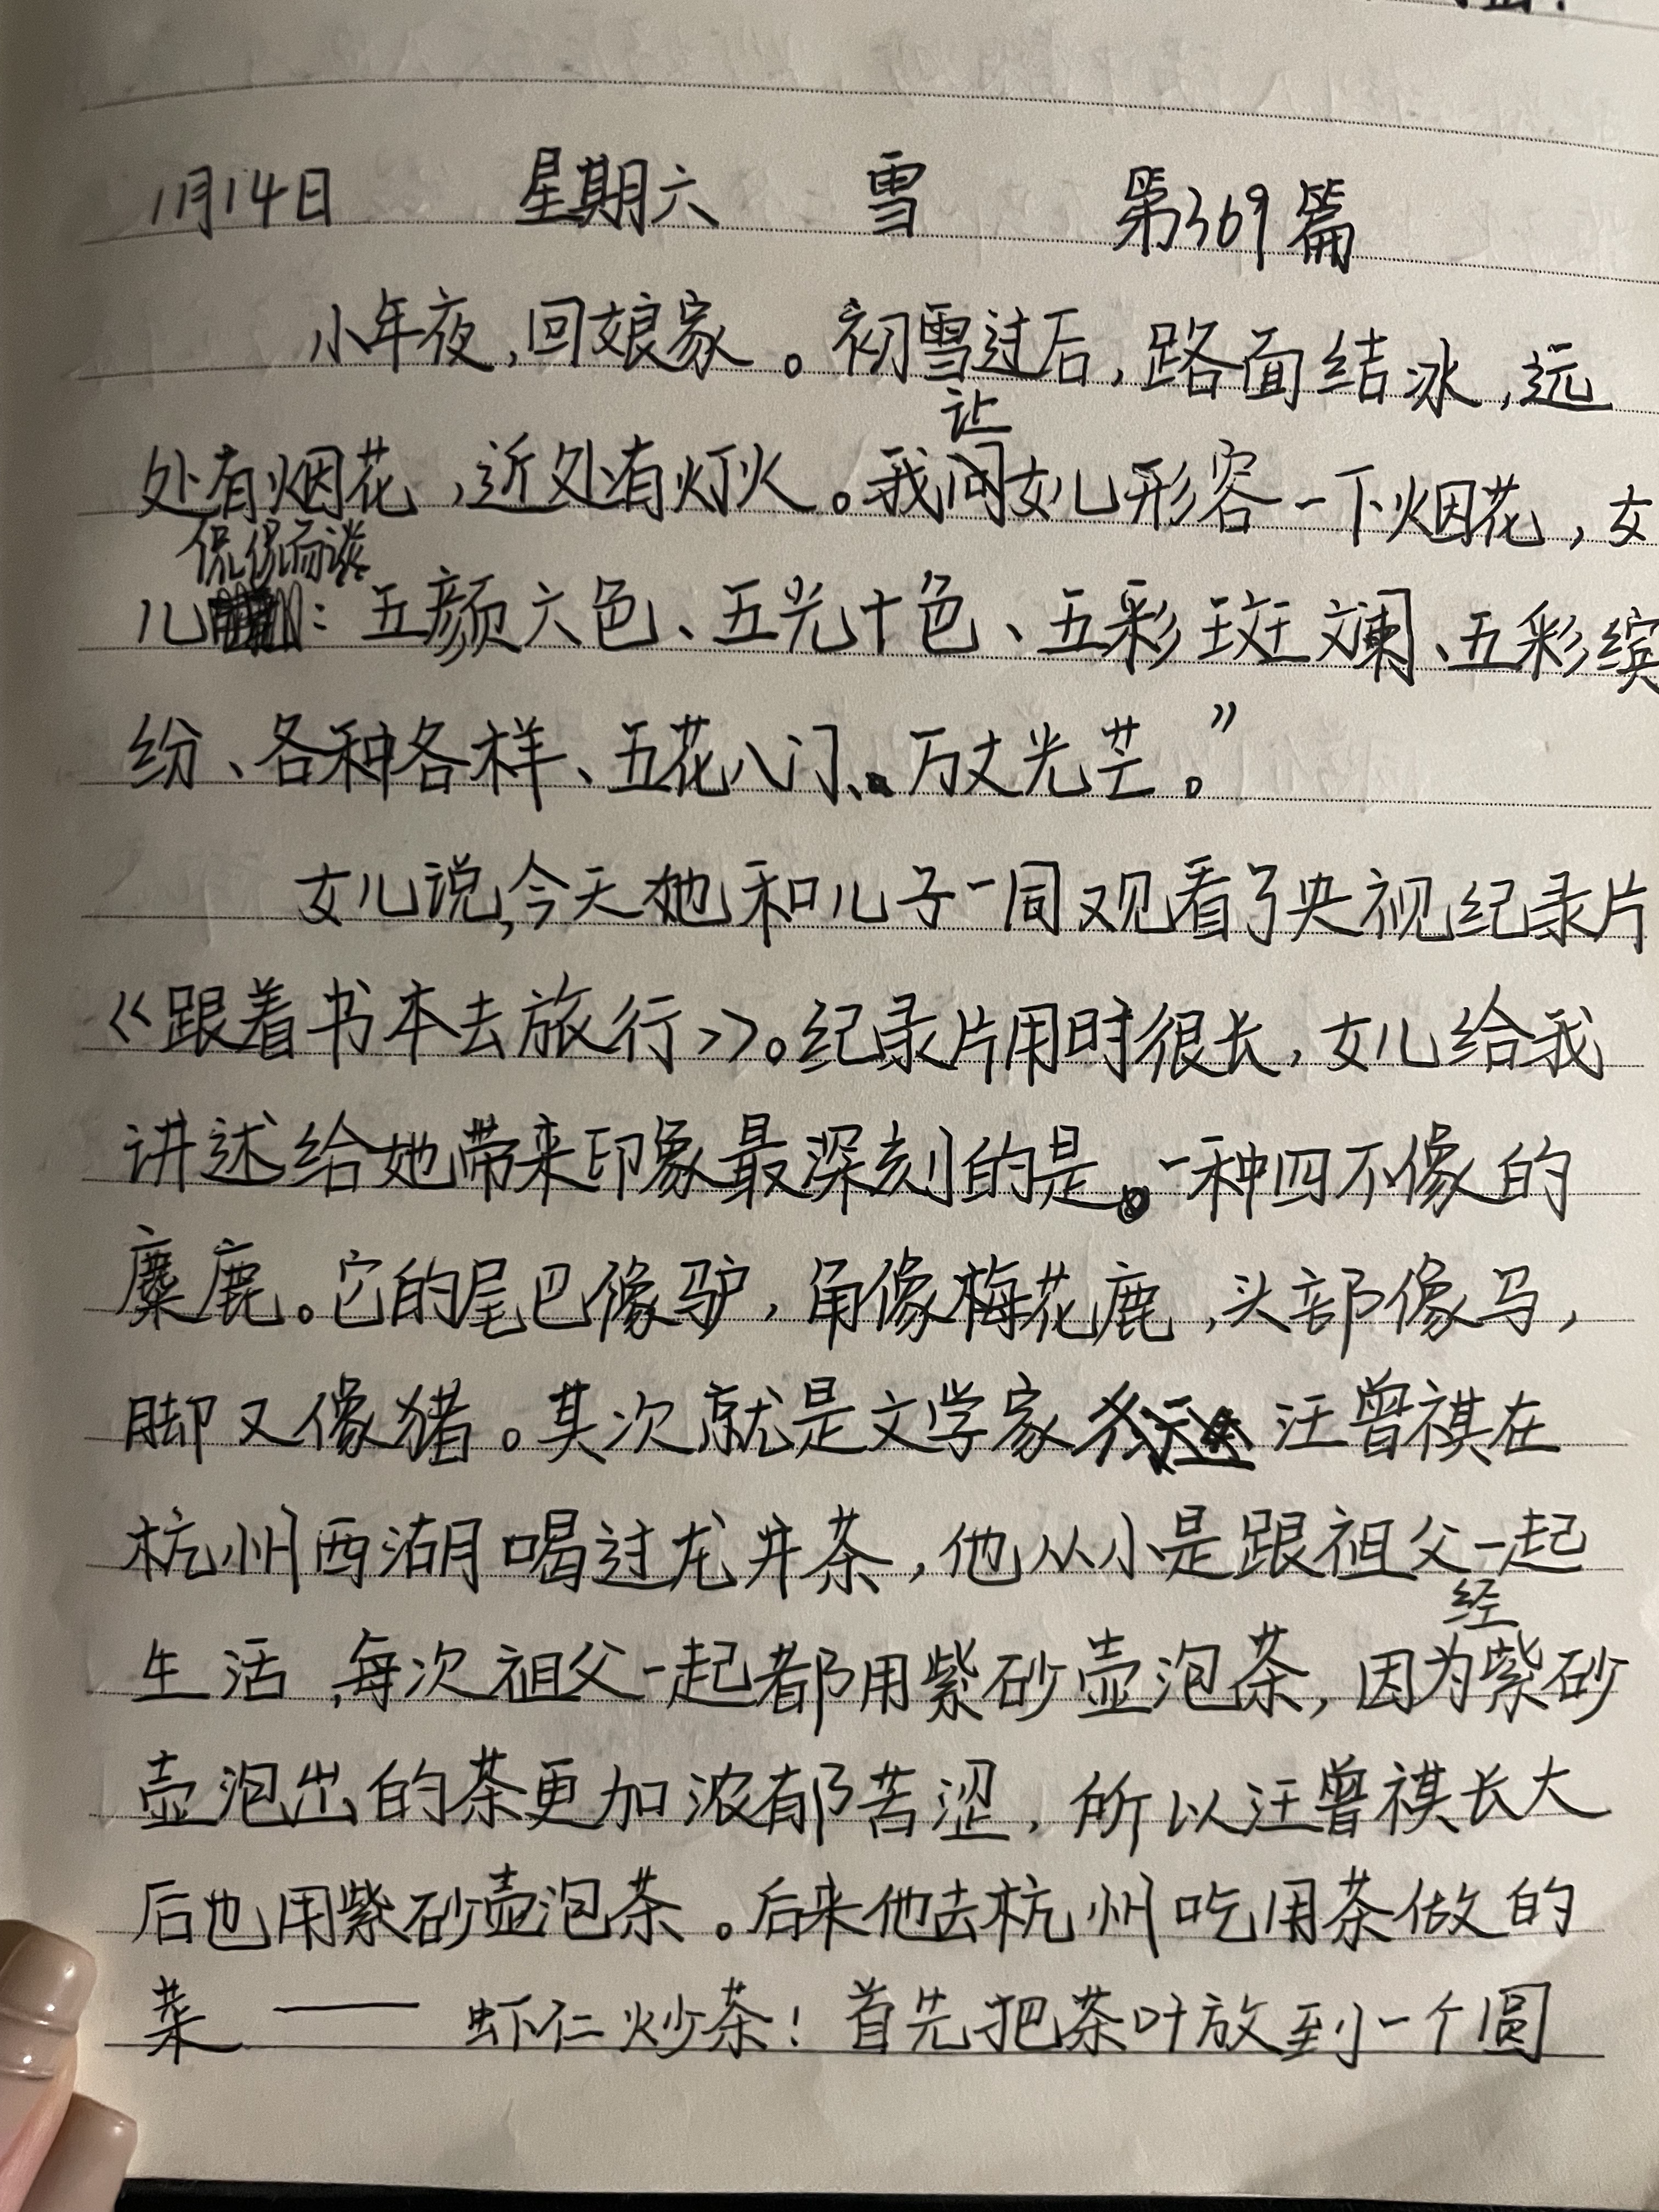 1月14日 星期六 雪 第369篇
小年夜,回娘家。初雪过后,路面结冰,远
让
处有烟花,近处有灯火。我问女儿形容一下烟花,女
侃侃而谈
儿:五颜六色、五光十色、五彩斑斓、五彩缤
纷、各种各样、五花八门、万丈光芒。”
女儿说,今天她和儿子一同观看了央视纪录片
《跟着书本去旅行》。纪录片用时很长,女儿给我
讲述给她带来印象最深刻的是。一种四不像的
麋鹿。它的尾巴像驴,角像梅花鹿,头部像马,
脚又像猪。其次就是文学家 汪曾祺在
杭州西湖喝过龙井茶,他从小是跟祖父一起
经
生活,每次祖父一起都用紫砂壶泡茶,因为紫砂
壶泡出的茶更加浓郁苦涩,所以汪曾祺长大
后也用紫砂壶泡茶。后来他去杭州吃用茶做的
菜——虾仁炒茶!首先把茶叶放到一个圆